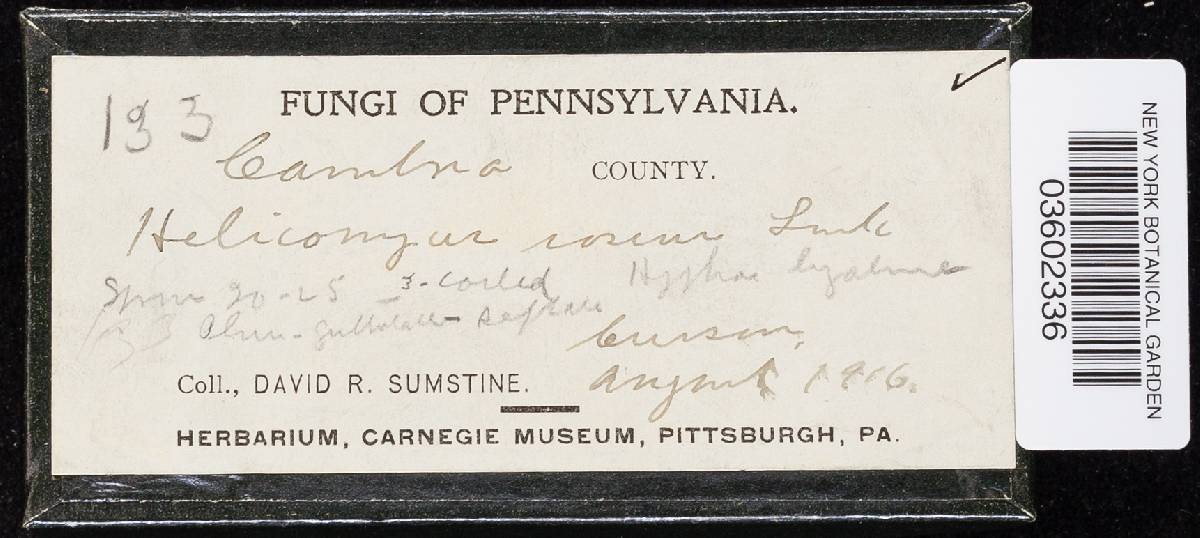 133
FUNGI OF PENNSYLVANIA.
Cambria COUNTY.
Helicomyces roseus Link
Spores 20-25 3-coiled Hyphae hyaline
guttulate septate
Cresson,
August 1916.
Coll., DAVID R. SUMSTINE.
HERBARIUM, CARNEGIE MUSEUM, PITTSBURGH, PA.
NEW YORK BOTANICAL GARDEN
03602336